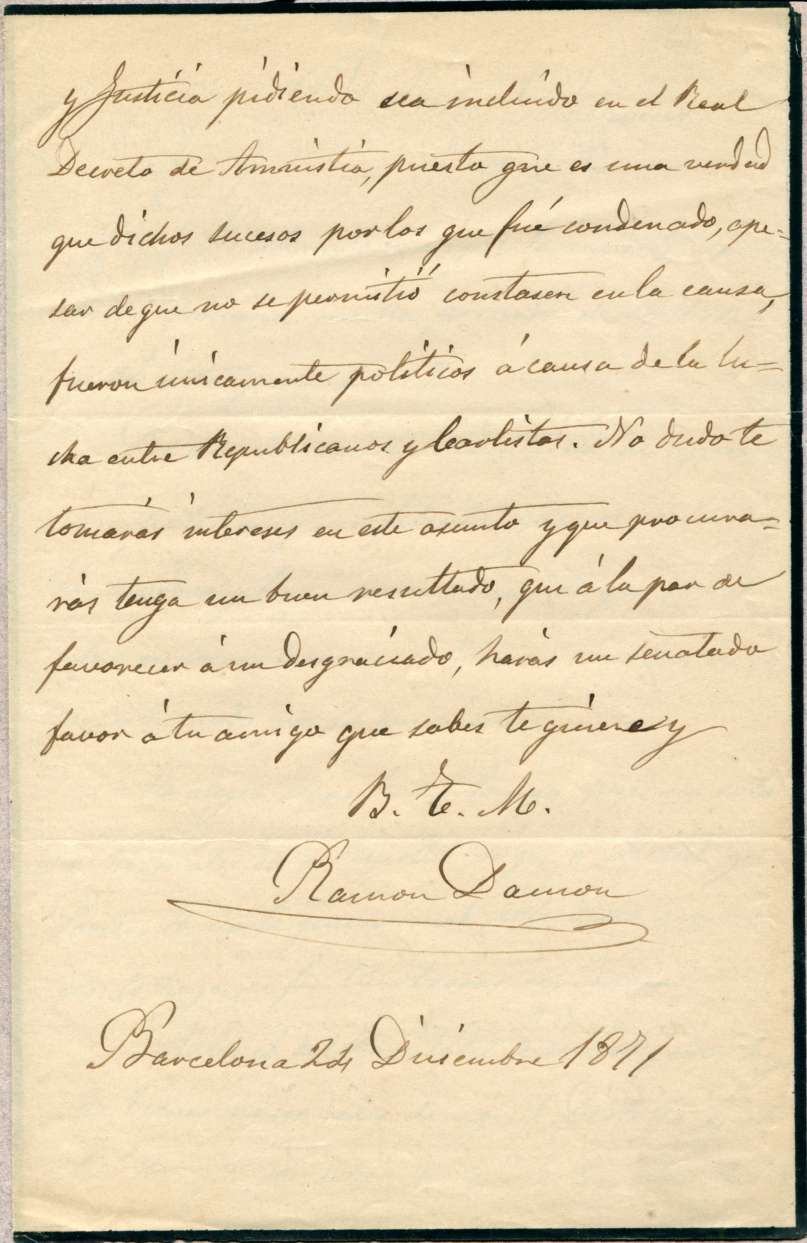 y Justicia pidiendo sea incluido en el Real
Decreto de Amnistia, puesto que es una verdad
que dichos sucesos por los que fué condenado, ape=
sar de que no se permitió constasen en la causa,
fueron únicamente politicos á causa de la lu=
cha entre Republicanos y Carlistas. No dudo te
tomarás intereses en este asunto y que procura=
rás tenga un buen resultado, que á la par de
favorecer á un desgraciado, harás un señalado
favor á tu amigo que sabes te quiere y
B. T. M.
Ramon Damon
Barcelona 24 Diciembre 1871